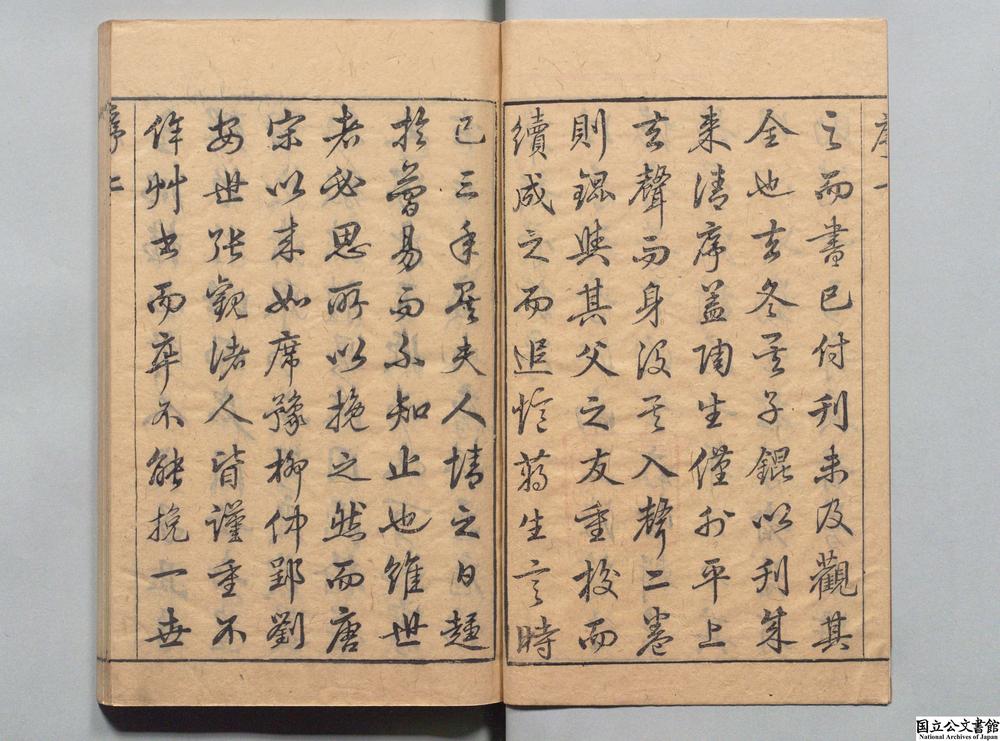 序一
之而書已付刊未及觀其
全也去冬其子錕以刊成
来請序蓋陶生僅刊平上
去聲而身没其入聲二卷
則錕與其父之友重校而
續成之而追憶蒋生言時
已三年矣夫人情之日趨
於簡易而不知止也維世
者必思所以挽之然而唐
宋以来如席豫柳仲郢劉
安世張觀諸人皆謹重不
作艸書而卒不能挽一世
序二
国立公文書館
National Archives of Japan